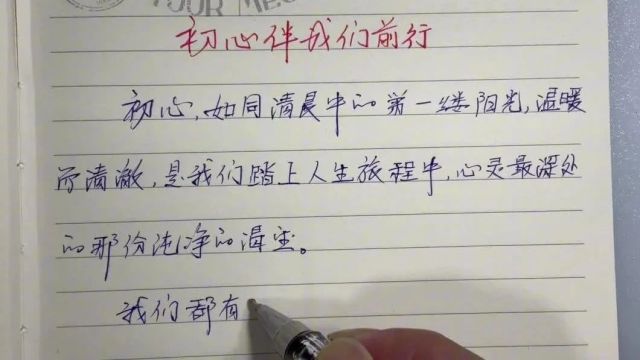 YOUR MES
初心伴我们前行
初心,如同清晨中的第一缕阳光,温暖
而清澈,是我们踏上人生旅程中,心灵最深处
的那份纯净的渴望。
我们都有